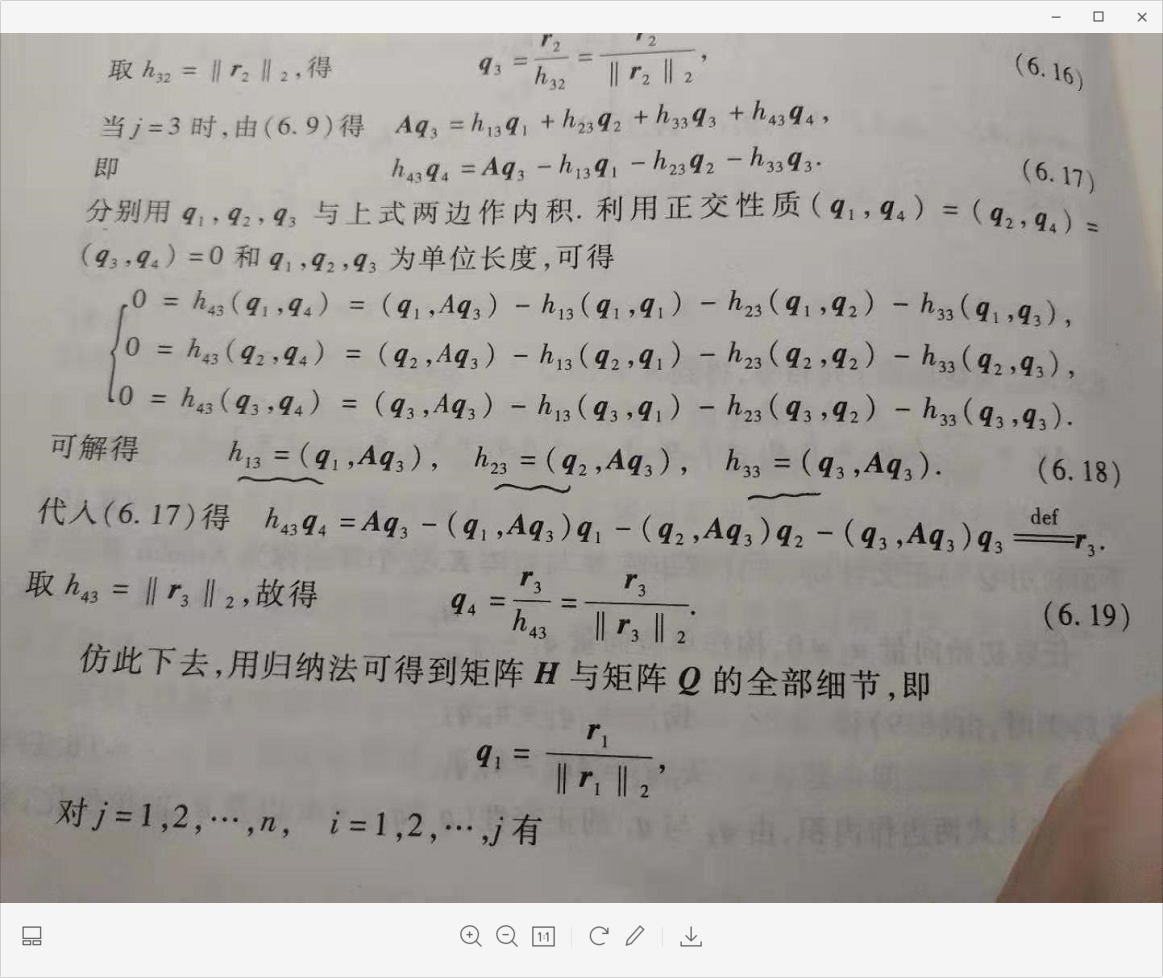 取 h₃₂ = ‖ r₂ ‖ ₂,得 q₃ = r₂/h₃₂ = r₂/‖ r₂ ‖ ₂, (6.16)
当 j=3 时,由(6.9)得 Aq₃ = h₁₃q₁ + h₂₃q₂ + h₃₃q₃ + h₄₃q₄,
即 h₄₃q₄ = Aq₃ − h₁₃q₁ − h₂₃q₂ − h₃₃q₃. (6.17)
分别用 q₁,q₂,q₃ 与上式两边作内积. 利用正交性质(q₁,q₄) = (q₂,q₄) =
(q₃,q₄) =0 和 q₁,q₂,q₃ 为单位长度,可得
0 = h₄₃(q₁,q₄) = (q₁,Aq₃) − h₁₃(q₁,q₁) − h₂₃(q₁,q₂) − h₃₃(q₁,q₃),
0 = h₄₃(q₂,q₄) = (q₂,Aq₃) − h₁₃(q₂,q₁) − h₂₃(q₂,q₂) − h₃₃(q₂,q₃),
0 = h₄₃(q₃,q₄) = (q₃,Aq₃) − h₁₃(q₃,q₁) − h₂₃(q₃,q₂) − h₃₃(q₃,q₃).
可解得 h₁₃ = (q₁,Aq₃), h₂₃ = (q₂,Aq₃), h₃₃ = (q₃,Aq₃). (6.18)
代入(6.17)得 h₄₃q₄ = Aq₃ − (q₁,Aq₃)q₁ − (q₂,Aq₃)q₂ − (q₃,Aq₃)q₃ def == r₃.
取 h₄₃ = ‖ r₃ ‖ ₂,故得 q₄ = r₃/h₄₃ = r₃/‖ r₃ ‖ ₂. (6.19)
仿此下去,用归纳法可得到矩阵 H 与矩阵 Q 的全部细节,即
q₁ = r₁/‖ r₁ ‖ ₂,
对 j=1,2,⋯,n, i=1,2,⋯,j 有
1:1